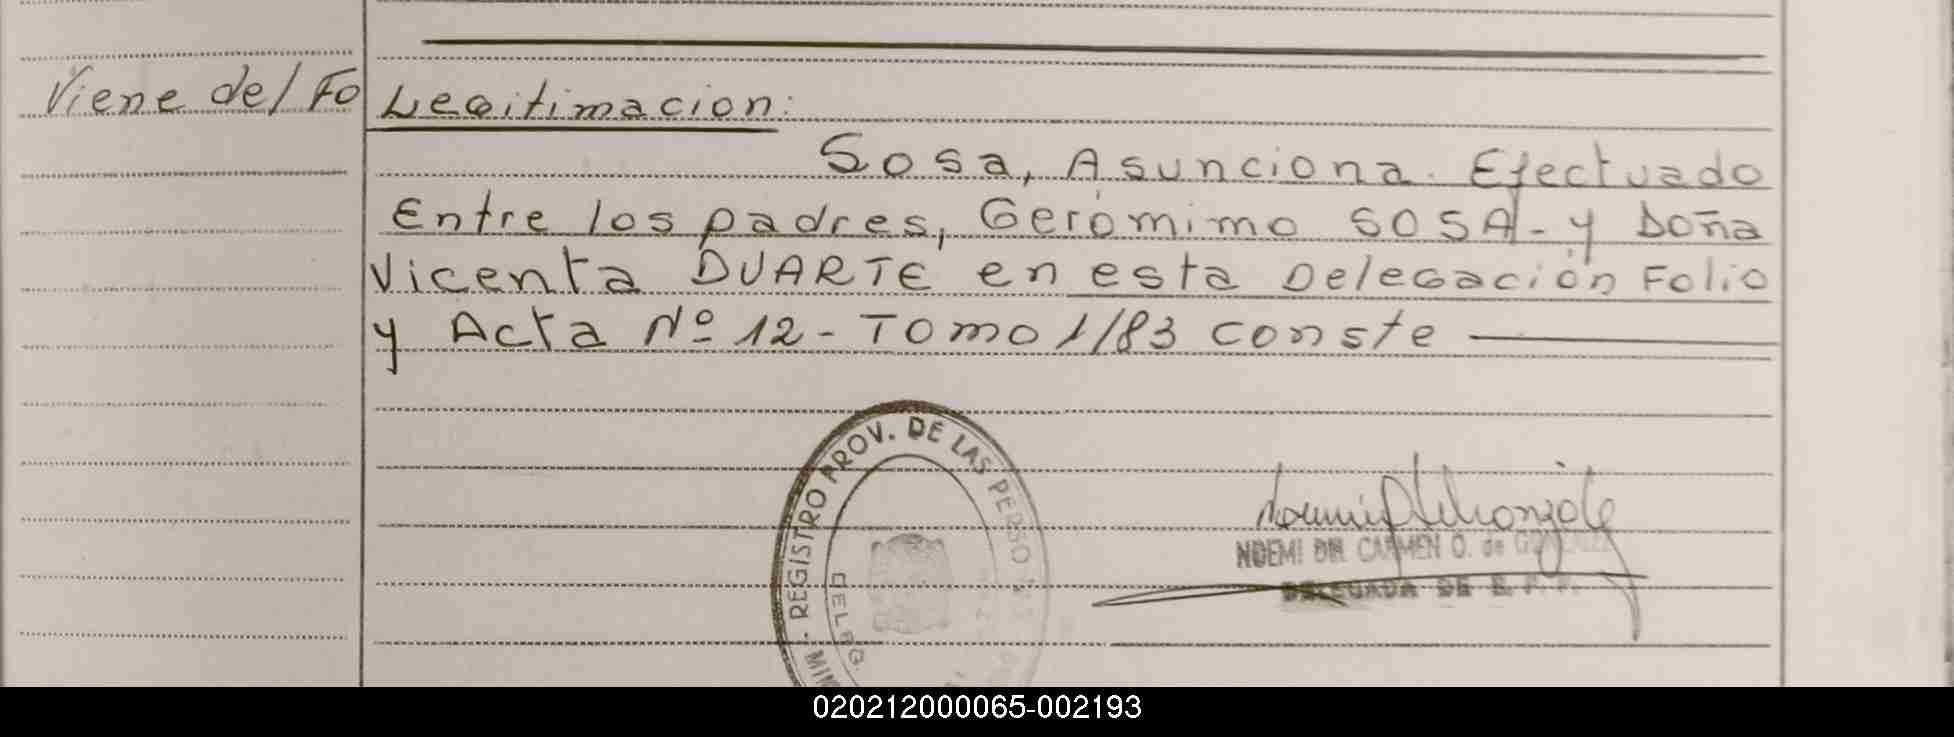 Viene del Fo Legitimacion:
Sosa, Asunciona. Efectuado
Entre los padres, Gerómimo SOSA - y Doña
Vicenta DUARTE en esta Delegación Folio
y Acta Nº 12 - Tomo 1/83 conste
REGISTRO PROV. DE LAS PERSO
DELEG.
MIN
NOEMI DEL CARMEN O. de
DELEGADA DE
020212000065-002193